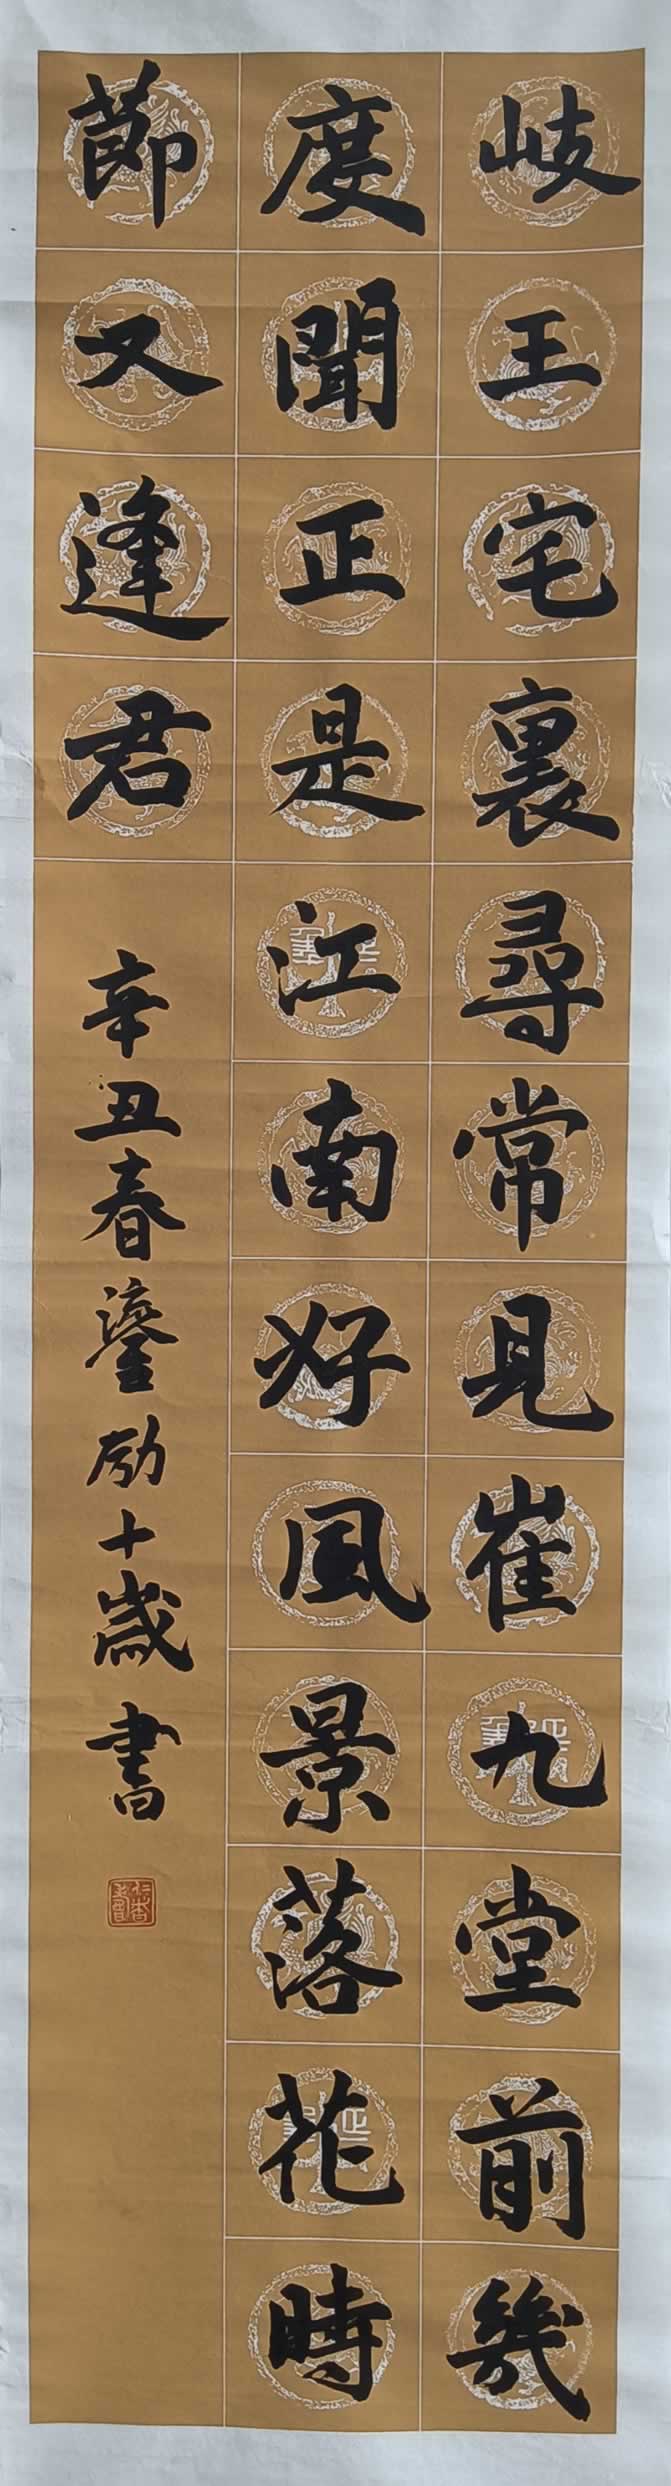 岐王宅裏尋常見崔九堂前幾
度聞正是江南好風景落花時
節又逢君
辛丑春鎏励十歲書